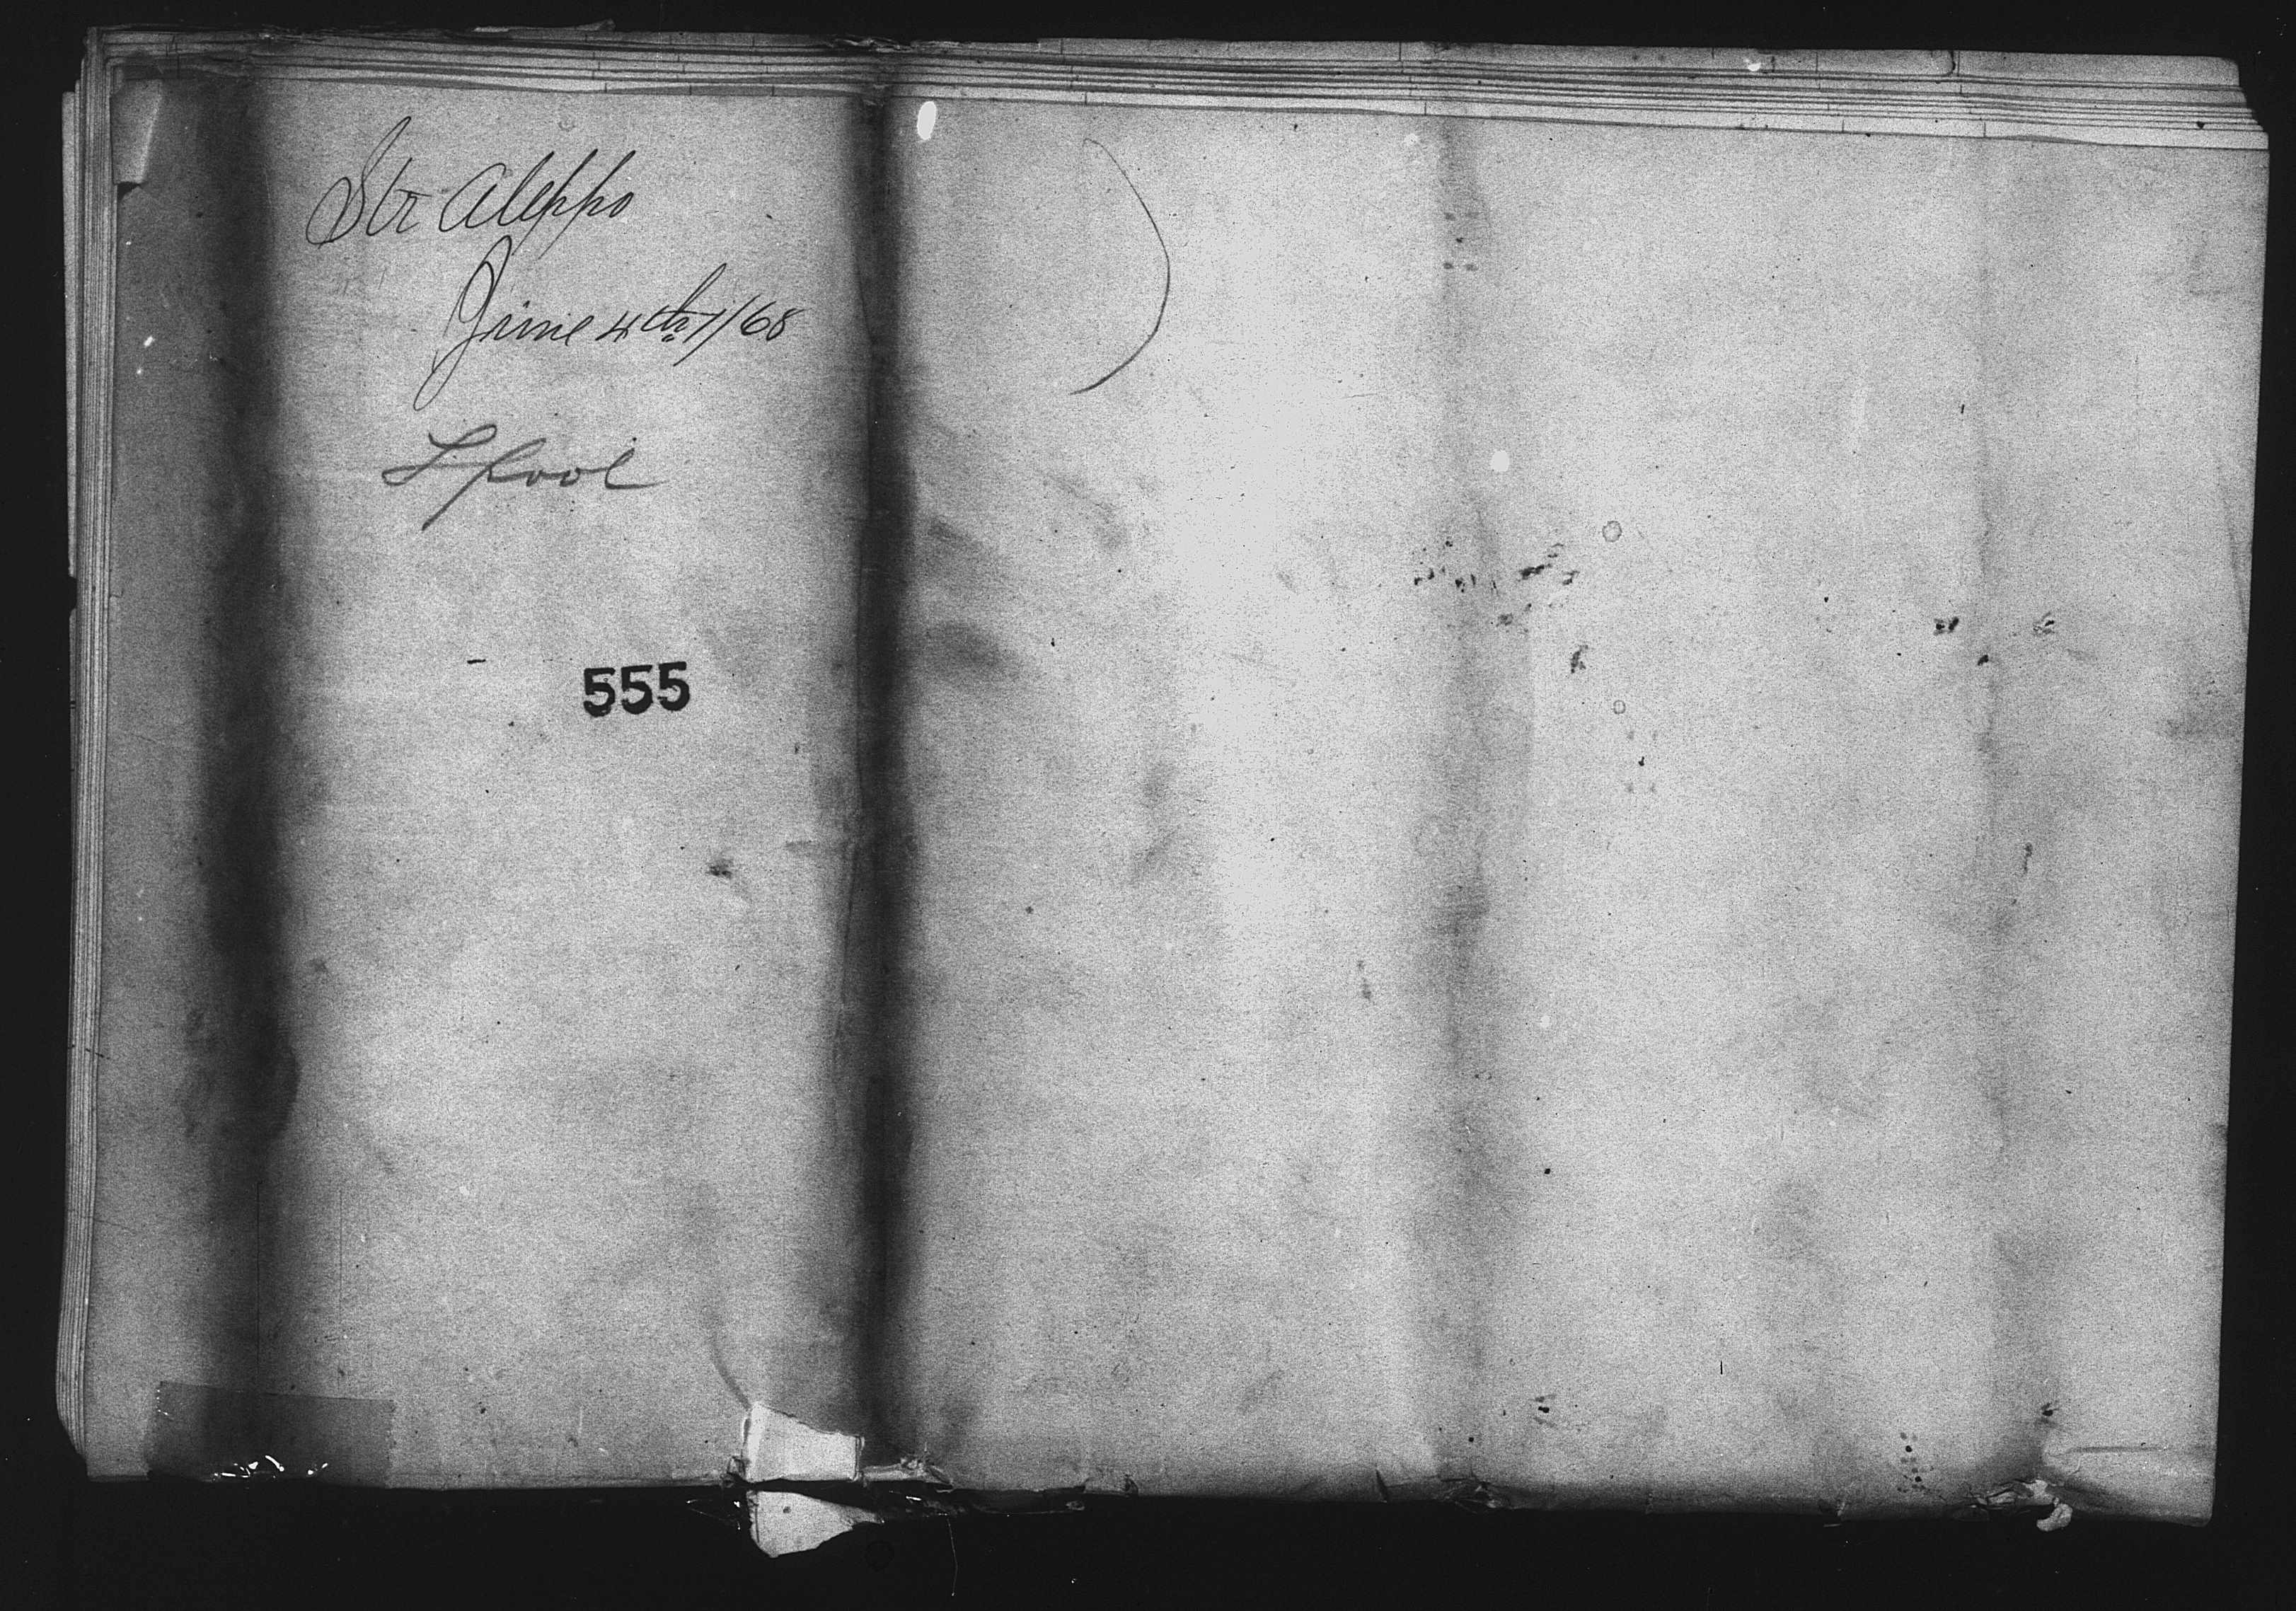 Str Aleppo
June 4th //68
Lpool
555